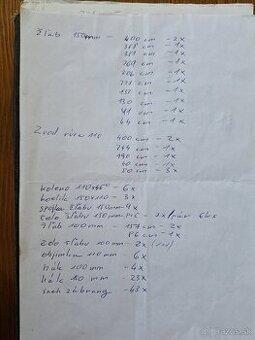 Žľab 150mm - 400 cm - 2x
381 cm - 1x
351 cm - 1x
269 cm - 1x
206 cm - 1x
171 cm - 1x
151 cm - 1x
130 cm - 1x
91 cm - 1x
44 cm - 1x
Zvod rúra 110 400 cm - 2x
244 cm - 1x
190 cm - 1x
90 cm - 1x
50 cm - 3x
koleno 110x45° - 6x
kotlík 150x110 - 3x
spojka žľabu 150mm - 9x
čelo žľabu 150mm
žľab 100mm - 157 cm - 2x
86 cm - 1x
čelo žľabu 100mm - 2x
objímka 110mm - 6x
hák 100mm - 4x
hák 150mm - 23x
sneh zábrany - 43x
bazos.sk